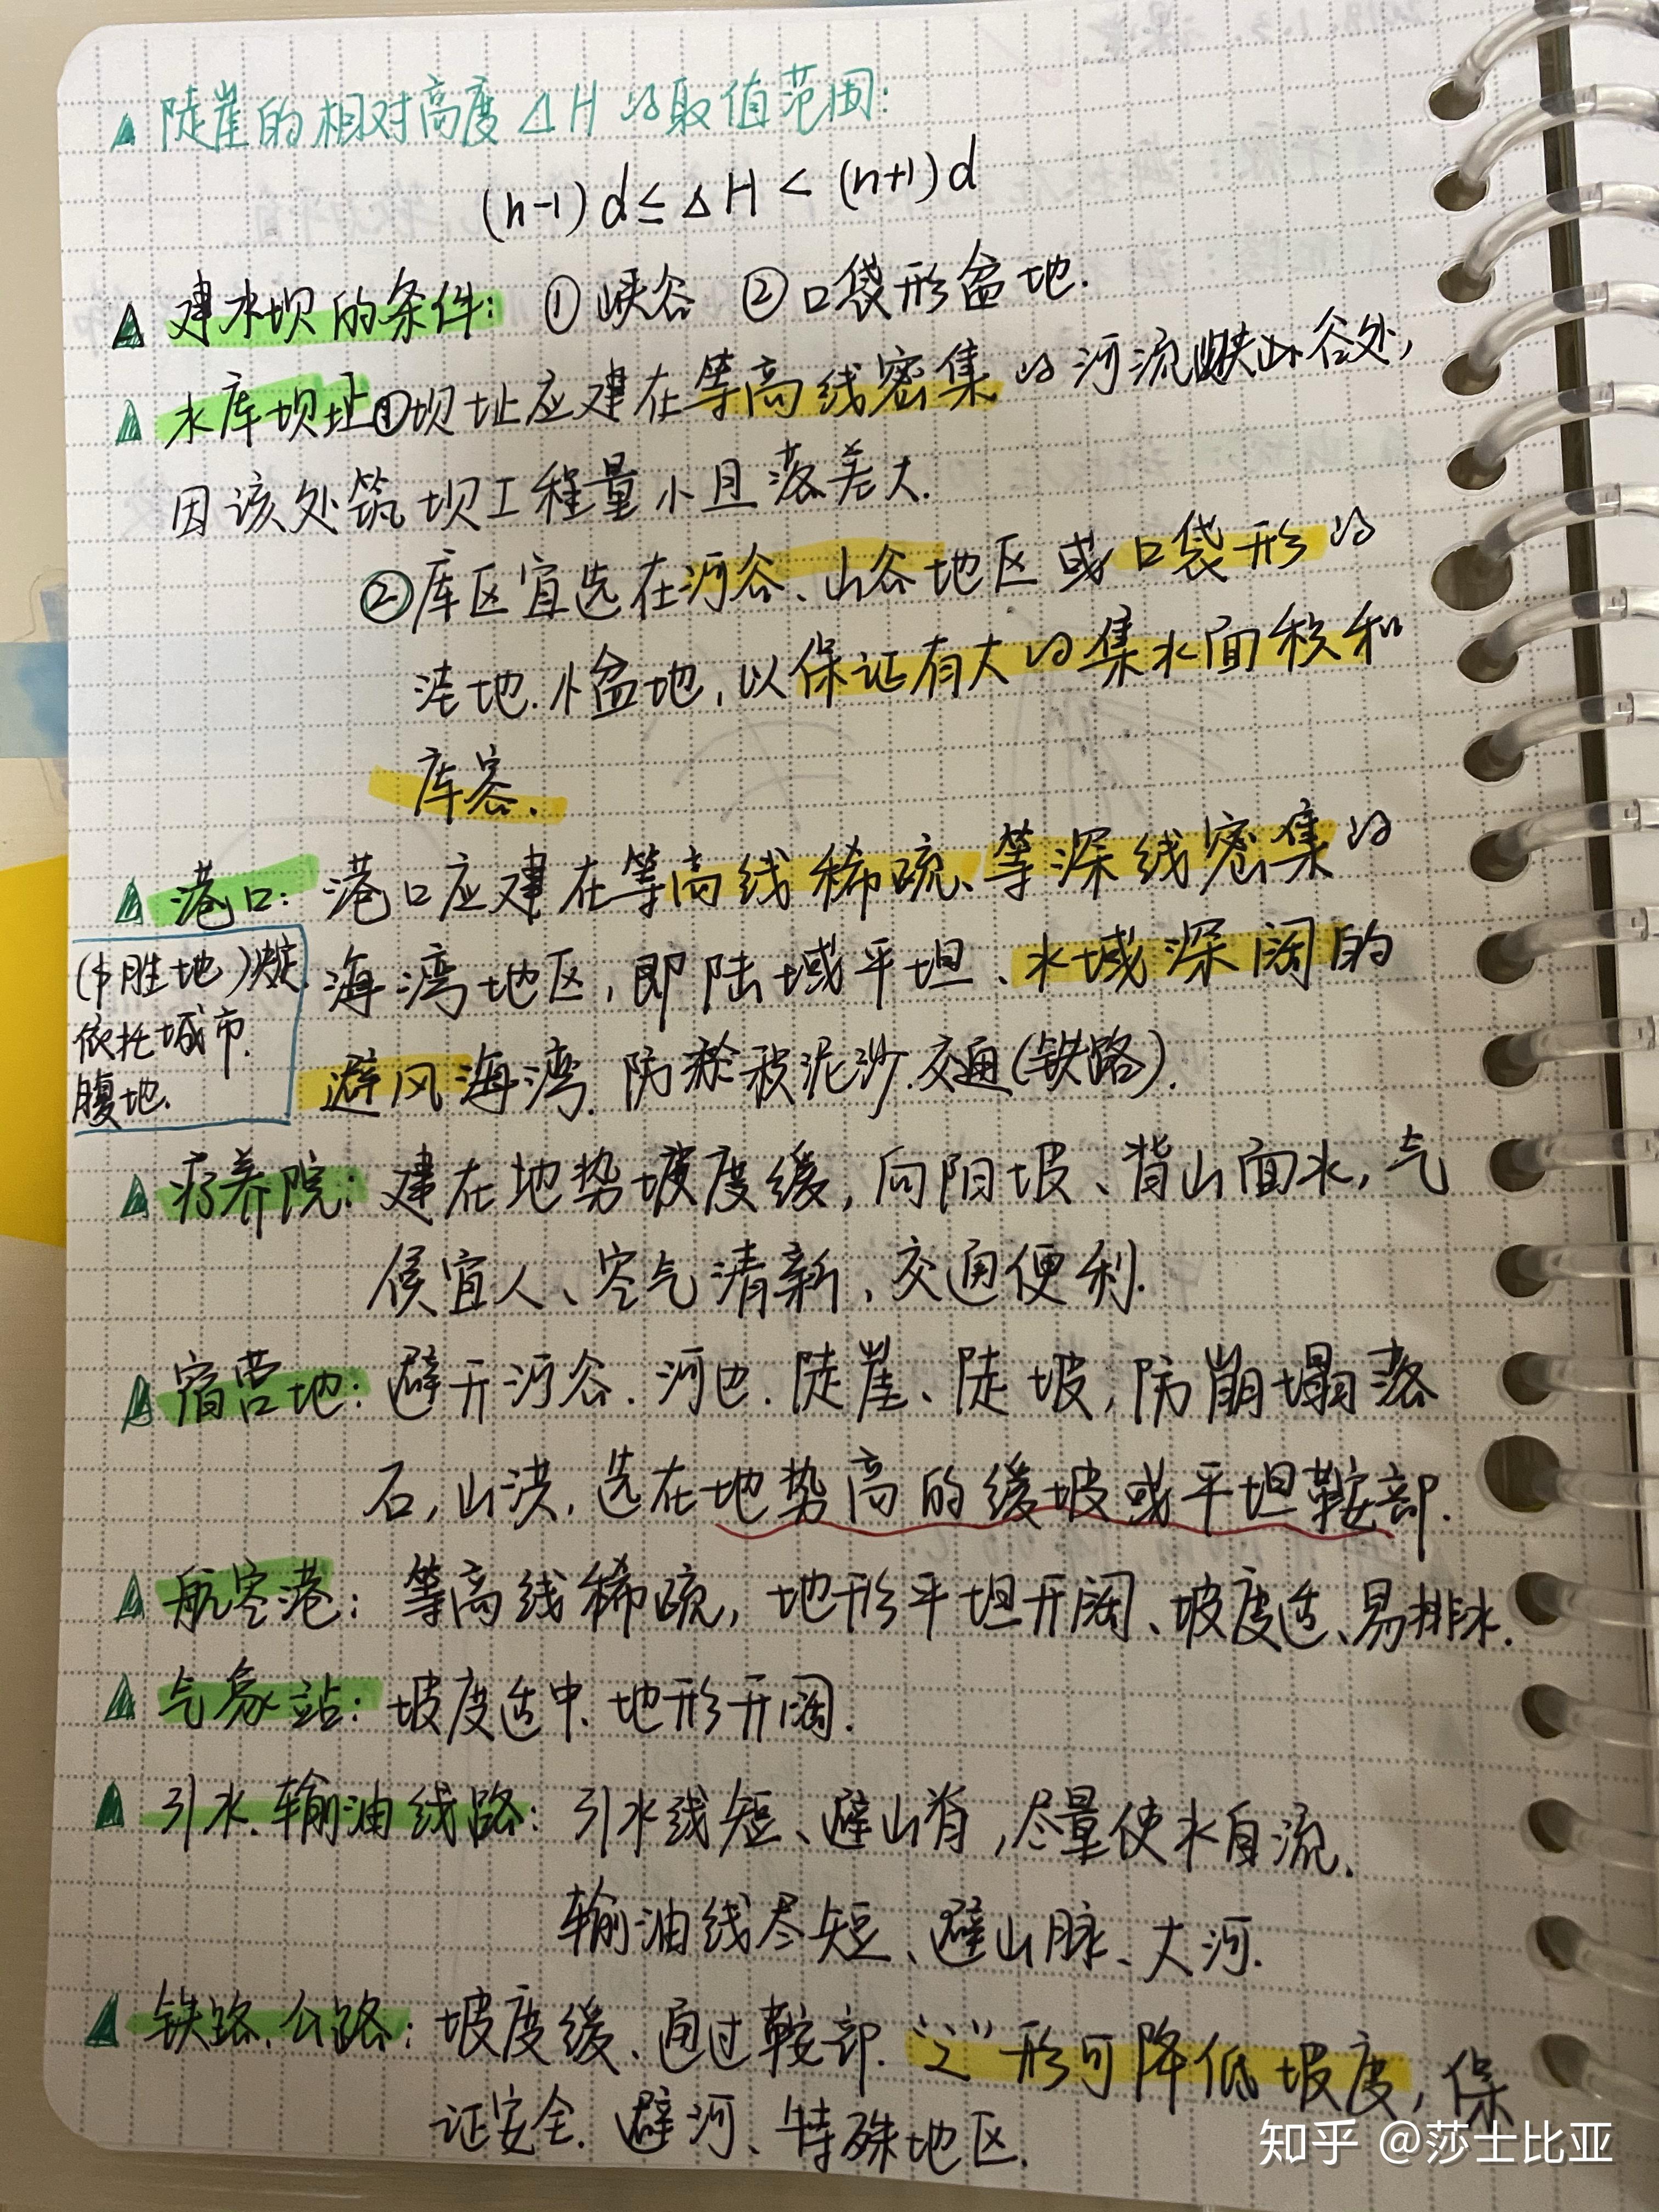 ▲ 陡崖的相对高度△H的取值范围:
(n-1)d≤△H<(n+1)d
▲ 建水坝的条件: ①峡谷 ②口袋形盆地.
▲ 水库坝址①坝址应建在等高线密集的河流峡山谷处,
因该处筑坝工程量小且落差大.
②库区宜选在河谷、山谷地区或口袋形的
洼地.小盆地,以保证有大的集水面积和
库容.
▲ 港口: 港口应建在等高线稀疏、等深线密集的
海湾地区,即陆域平坦、水域深阔的
避风海湾.防淤积泥沙.交通(铁路).
依托城市.
腹地.
▲ 疗养院: 建在地势坡度缓,向阳坡、背山面水,气
候宜人、空气清新、交通便利.
▲ 宿营地: 避开河谷.河边.陡崖、陡坡,防崩塌落
石,山洪,选在地势高的缓坡或平坦鞍部.
▲ 航空港: 等高线稀疏,地形平坦开阔、坡度适、易排水.
▲ 气象站: 坡度适中、地形开阔.
▲ 引水.输油线路: 引水线短、避山脊,尽量使水自流.
输油线尽短、避山脉、大河.
▲ 铁路.公路: 坡度缓、通过鞍部.“之”形可降低坡度,保
证安全.避河、特殊地区.
知乎 @莎士比亚